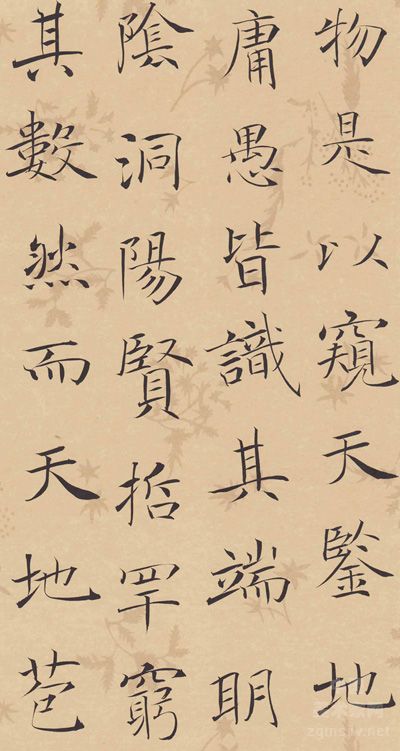 物是以窺天鑒地
庸愚皆識其端明
陰洞陽賢哲罕窮
其數然而天地苞
zgmsjw.net